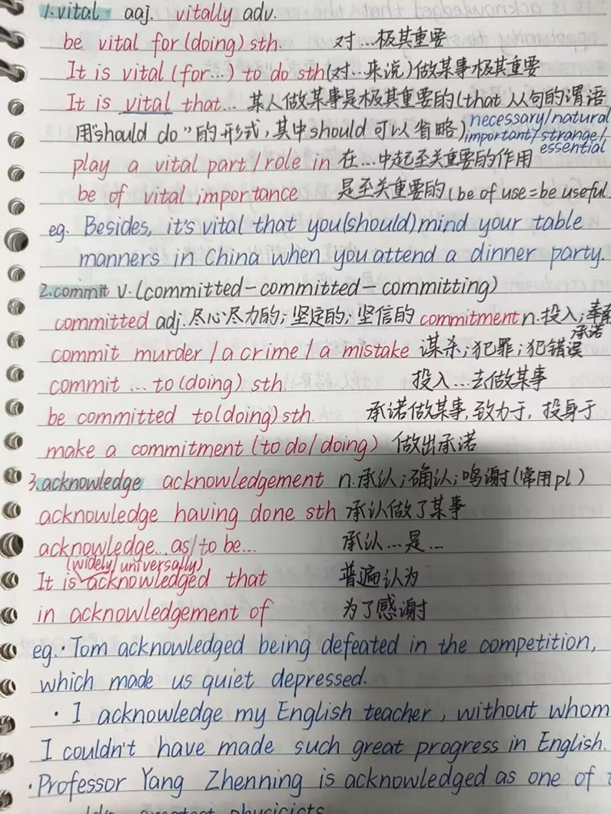 1.vital adj. vitally adv.
be vital for(doing) sth. 对…极其重要
It is vital (for…) to do sth(对…来说)做某事极其重要
It is vital that… 某人做某事是极其重要的(that从句的谓语
用"should do"的形式,其中should可以省略) necessary/natural
important/strange/
essential
play a vital part/role in 在…中起至关重要的作用
be of vital importance 是至关重要的(be of use=be useful
eg. Besides, it's vital that you(should)mind your table
manners in China when you attend a dinner party.
2.commit v.(committed-committed-committing)
committed adj.尽心尽力的;坚定的;坚信的 commitment n.投入;
承诺
commit murder/a crime/a mistake 谋杀;犯罪;犯错误
commit … to (doing) sth 投入…去做某事
be committed to(doing)sth 承诺做某事,致力于,投身于
make a commitment (to do/doing) 做出承诺
3.acknowledge acknowledgement n.承认;确认;鸣谢(常用pl)
acknowledge having done sth 承认做了某事
acknowledge…as/to be… 承认…是…
(widely/universally)
It is acknowledged that 普遍认为
in acknowledgement of 为了感谢
eg.·Tom acknowledged being defeated in the competition,
which made us quiet depressed.
·I acknowledge my English teacher, without whom
I couldn't have made such great progress in English.
·Professor Yang Zhenning is acknowledged as one of
greatest physicists